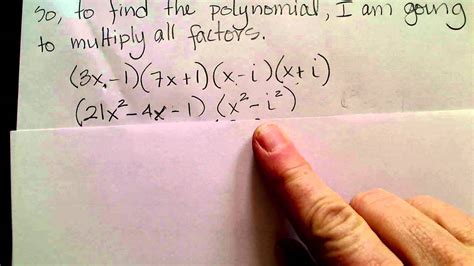 So, to find the polynomial, I am going
to multiply all factors.
(3x-1)(7x+1)(x-i)(x+i)
(21x²-4x-1) (x²-i²)